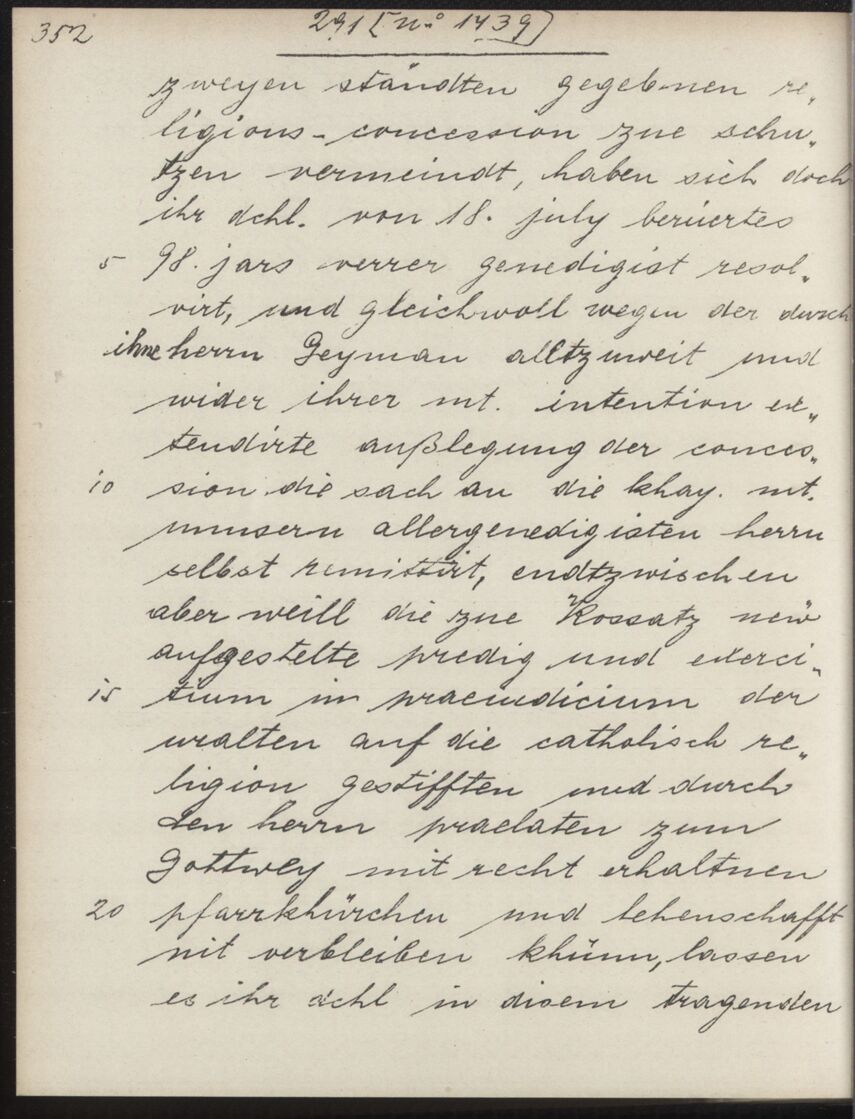 352
291 [N.º 1439]
zweyen ständten gegebnen re„
ligions-concession zue schu„
tzen vermeindt, haben sich doch
ihr dchl. von 18. july berüertes
5 98. jars verrer genedigist resol„
virt, und gleichwoll wegen der durch
ihne herrn Geyman alltzuweit und
wider ihrer mt. intention ex„
tendirte außlegung der conces„
10 sion die sach an die khay. mt.
unnsern allergenedigisten herrn
selbst remittirt, endtzwischen
aber weill die zue Rossatz new
aufgestelte predig und exerci„
15 tium in praeiudicium der
uralten auf die catholisch re„
ligion gestifften und durch
den herrn praelaten zum
Gottwey mit recht erhaltnen
20 pfarrkhürchen und lehenschafft
nit verbleiben khünn, lassen
es ihr dchl in disem tragenden